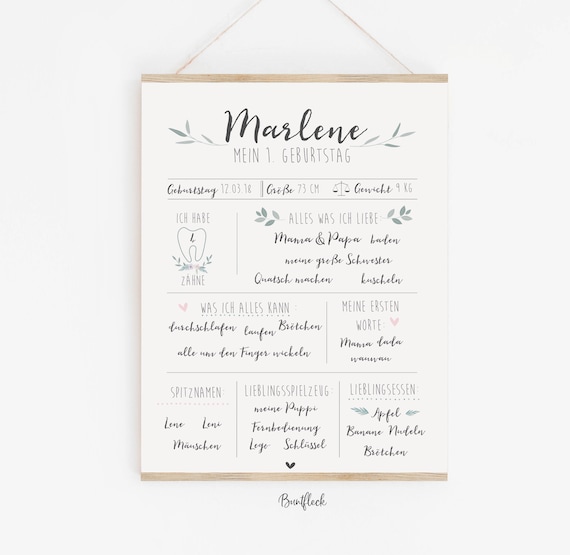 Marlene
MEIN 1. GEBURTSTAG
Geburtstag 12.03.18 Größe 73 CM Gewicht 9 KG
ICH HABE
ZÄHNE
ALLES WAS ICH LIEBE:
Mama & Papa baden
meine große Schwester
Quatsch machen kuscheln
WAS ICH ALLES KANN:
durchschlafen laufen Brötchen
alle um den Finger wickeln
MEINE ERSTEN
WORTE:
Mama dada
wauwau
SPITZNAMEN:
Lene Leni
Mäuschen
LIEBLINGSSPIELZEUG:
meine Puppi
Fernbedienung
Lego Schlüssel
LIEBLINGSESSEN:
Apfel
Banane Nudeln
Brötchen
Buntfleck